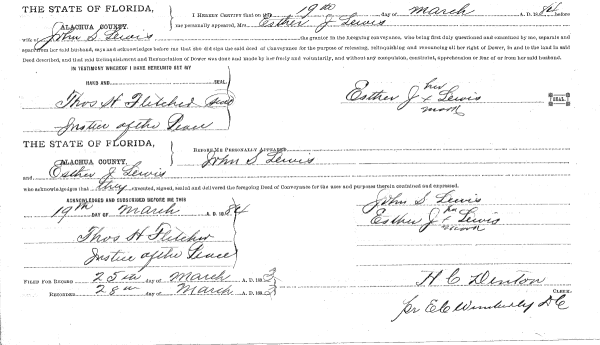 THE STATE OF FLORIDA,
ALACHUA COUNTY.
I HEREBY CERTIFY that on this 19th day of March A. D. 1884 before
me personally appeared, Mrs. Esther J Lewis
wife of John S Lewis the grantor in the foregoing conveyance, who being first duly questioned and examined by me, separate and
apart from her said husband, says and acknowledges before me that she did sign the said deed of conveyance for the purpose of releasing, relinquishing and renouncing all her right of Dower, in and to the land in said
Deed described, and that said Relinquishment and Renunciation of Dower was done and made by her freely and voluntarily, and without any compulsion, constraint, apprehension or fear of or from her said husband.
IN TESTIMONY WHEREOF I HAVE HEREUNTO SET MY
HAND AND SEAL.
Thos H Fletcher Seal
Justice of the Peace
Esther J her x mark Lewis
SEAL.
THE STATE OF FLORIDA,
ALACHUA COUNTY.
BEFORE ME PERSONALLY APPEARED John S Lewis
and Esther J Lewis
who acknowledges that they executed, signed, sealed and delivered the foregoing Deed of Conveyance for the uses and purposes therein contained and expressed.
ACKNOWLEDGED AND SUBSCRIBED BEFORE ME THIS
19th DAY OF March A. D. 1884
Thos H Fletcher
Justice of the Peace
John S Lewis
Esther J her x mark Lewis
FILED FOR RECORD 25th day of March A. D. 188
RECORDED 28th day of March A. D. 188
H C Denton
CLERK.
pr E C Wimberly D C